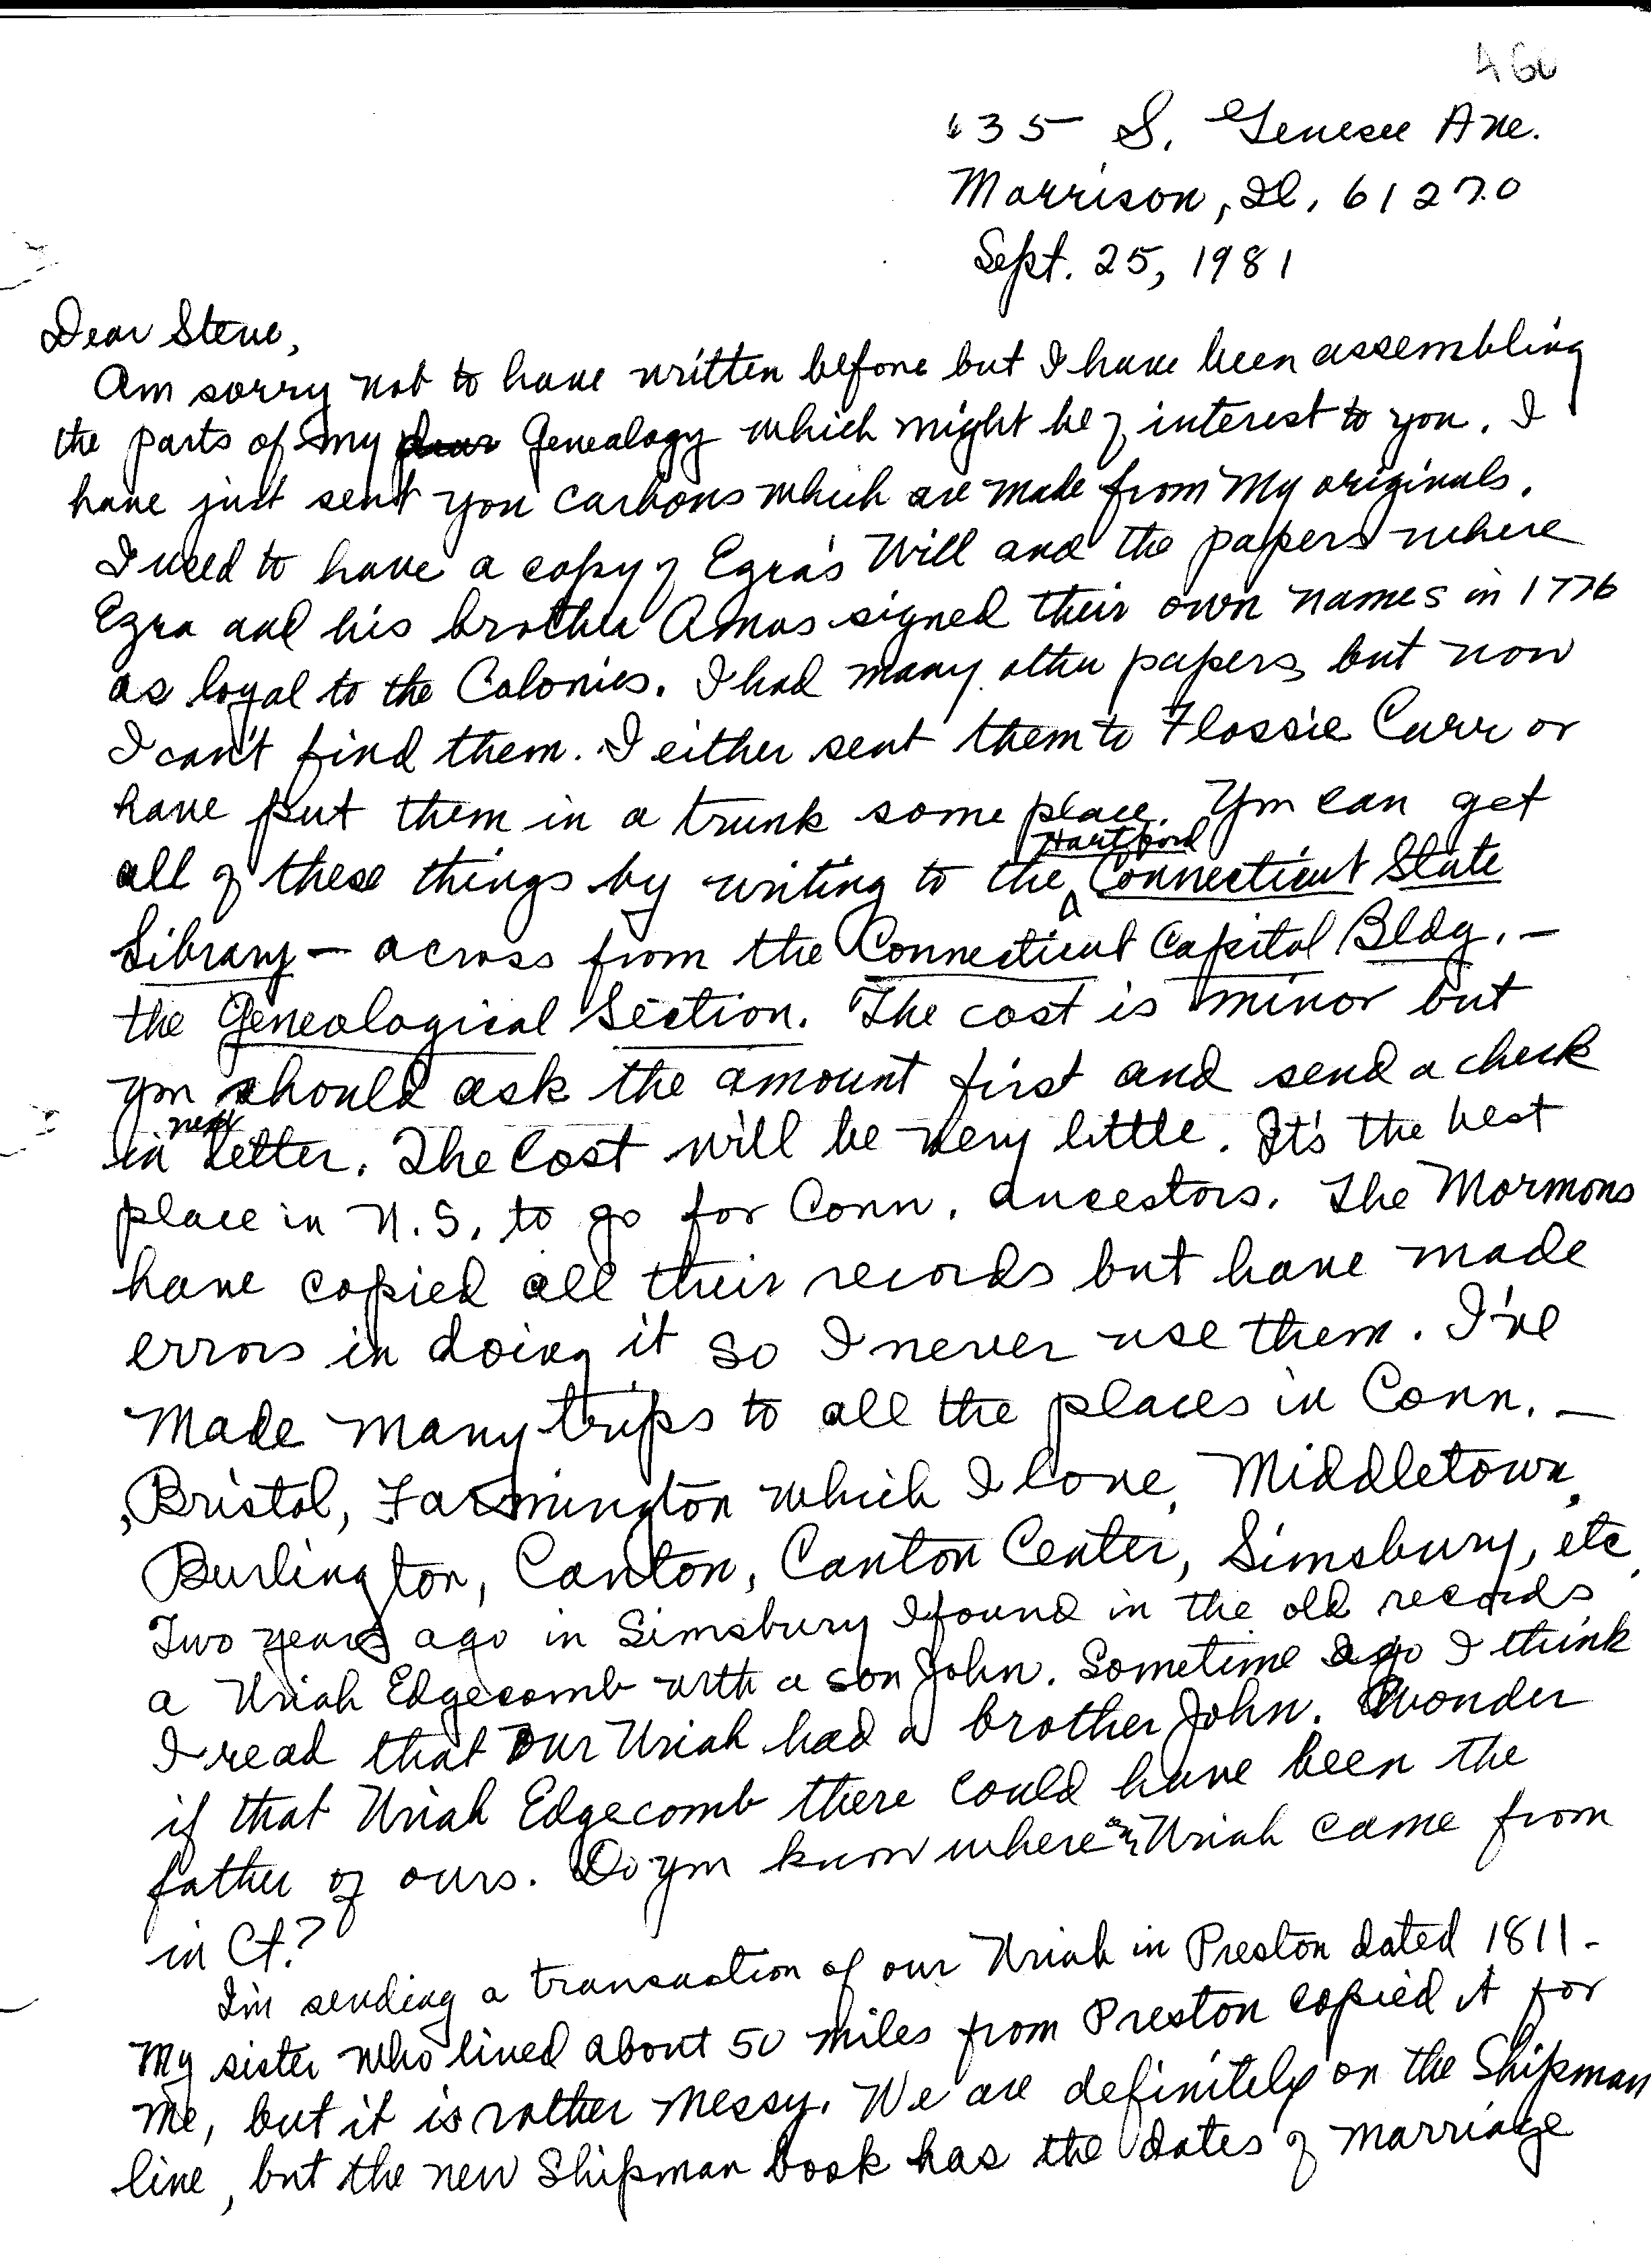 635 S. Genesee Ave.
Morrison, Il. 61270
Sept. 25, 1981
Dear Steve,
Am sorry not to have written before but I have been assembling
the parts of my Genealogy which might be of interest to you. I
have just sent you carbons which are made from my originals.
I used to have a copy of Ezra's Will and the papers where
Ezra and his brother Amos signed their own names in 1776
as loyal to the Colonies. I had many other papers but now
I can't find them. I either sent them to Flossie Carr or
have put them in a trunk some place. You can get
all of these things by writing to the Hartford Connecticut State
Library - across from the Connecticut Capitol Bldg. -
the Genealogical Section. The cost is minor but
you should ask the amount first and send a check
in next letter. The Cost will be very little. It's the best
place in U.S. to go for Conn. ancestors. The Mormons
have copied all their records but have made
errors in doing it so I never use them. I've
made many trips to all the places in Conn. -
Bristol, Farmington which I love, Middletown,
Burlington, Canton, Canton Center, Simsbury, etc.
Two years ago in Simsbury I found in the old records
a Uriah Edgecomb with a son John. Sometime ago I think
I read that our Uriah had a brother John. Wonder
if that Uriah Edgecomb there could have been the
father of ours. Do you know where our Uriah came from
in Ct.?
I'm sending a transaction of our Uriah in Preston dated 1811 -
My sister who lived about 50 miles from Preston copied it for
me, but it is rather messy. We are definitely on the Shipman
line, but the new Shipman book has the dates of marriage